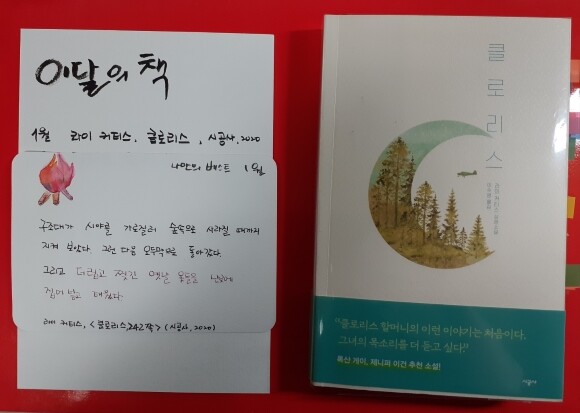 이달의 책
1월 라이 커티스, 클로리스, 시공사, 2020
나만의 베스트 1월
구조대가 시야를 가로질러 숲속으로 사라질 때까지
지켜 보았다. 그런 다음 오두막으로 돌아갔다.
그리고 더럽고 찢긴 옛날 옷들을 난로에
집어 넣고 태웠다.
라이 커티스, <클로리스, 242쪽> (시공사, 2020)
클로리스
라이 커티스 장편소설
"클로리스 할머니의 이런 이야기는 처음이다.
그녀의 목소리를 더 듣고 싶다!"
록산 게이, 제니퍼 이건 추천 소설!
시공사